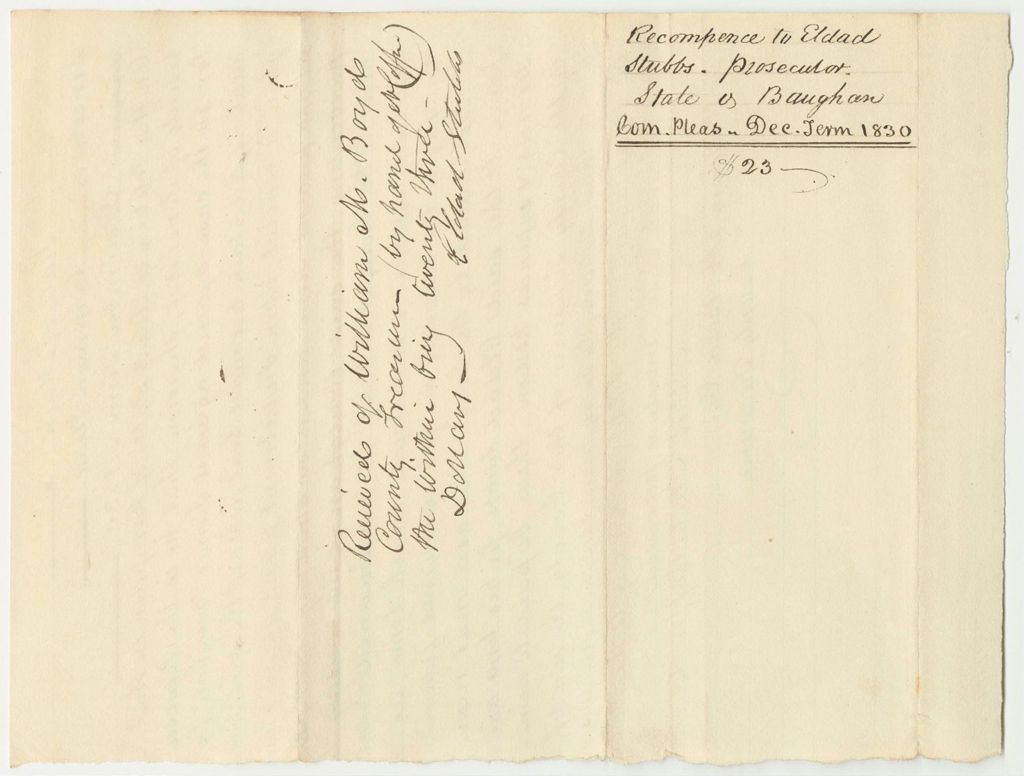 Recompence to Eldad
Stubbs. Prosecutor.
State vs Baughan
Com. Pleas. Dec. Term 1830
$23
Received of William M. Boyd
County Treasurer (by hand of
the within being twenty three
Dollars Eldad Stubbs